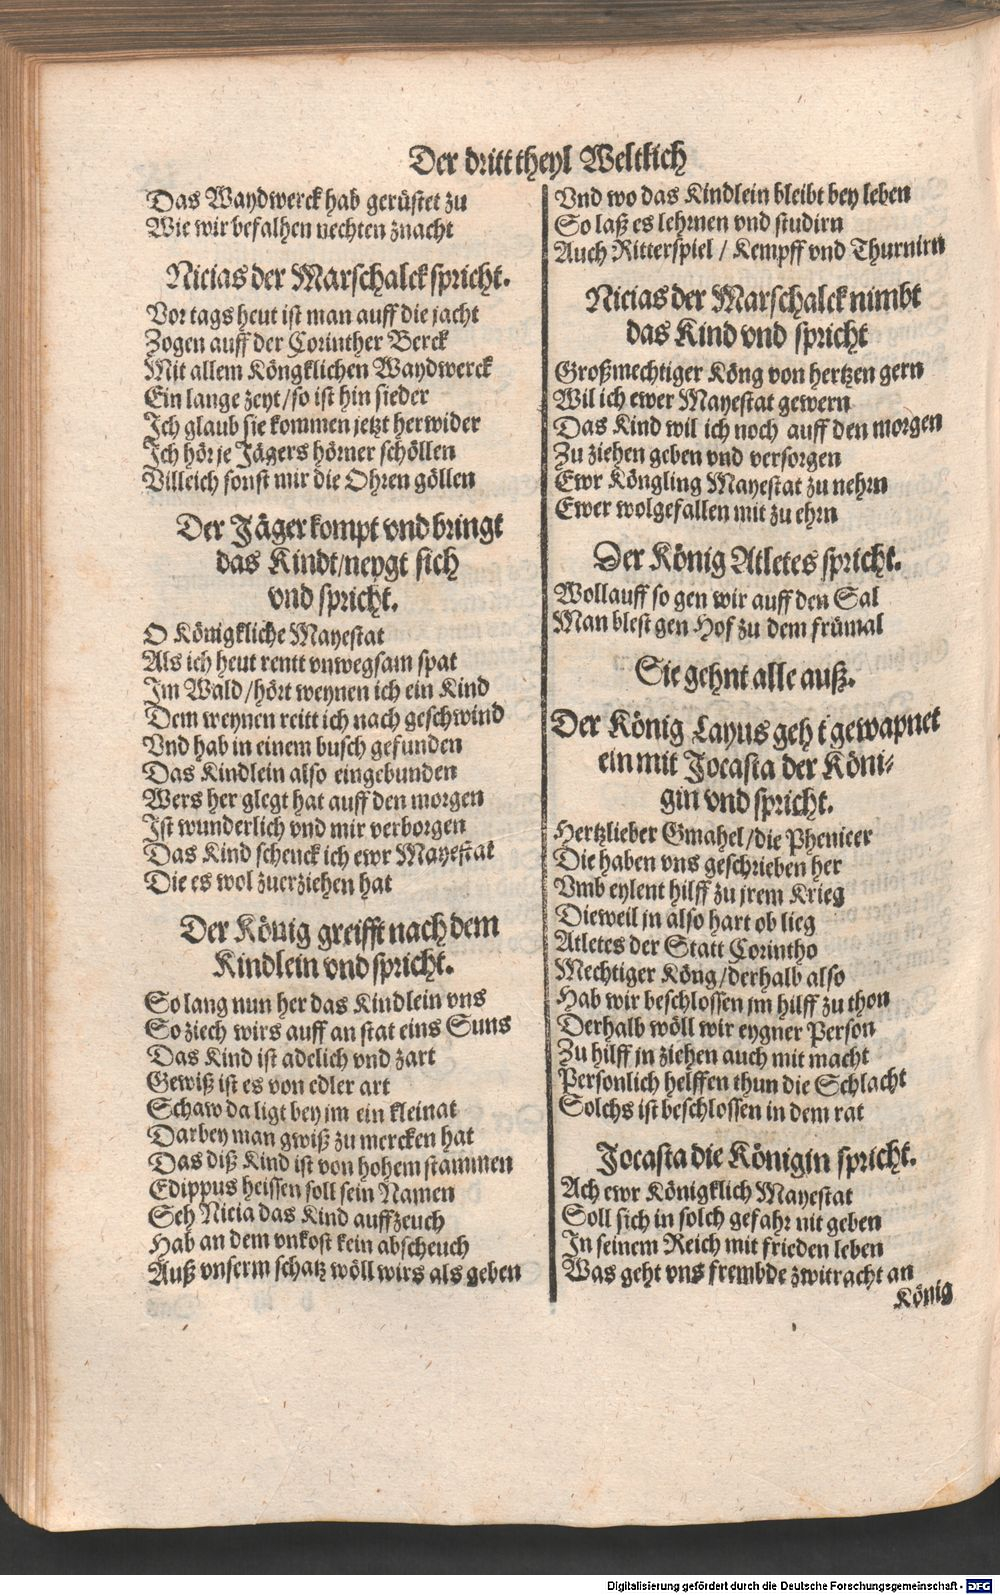 Der dritt theyl Weltlich
Das Waydwerck hab gerüstet zu
Wie wir befalhen nechten znacht
Nicias der Marschalck spricht.
Vor tags heut ist man auff die jacht
Zogen auff der Corinther Berck
Mit allem Köngklichen Waydwerck
Ein lange zeyt/so ist hin sieder
Ich glaub sie kommen jetzt herwider
Ich hör je Jägers hörner schöllen
Villeich sonst mir die Ohren göllen
Der Jäger kompt vnd bringt
das Kindt/neygt sich
vnd spricht.
O Königkliche Mayestat
Als ich heut rentt vnwegsam spat
Im Wald/hört weynen ich ein Kind
Dem weynen reitt ich nach geschwind
Vnd hab in einem busch gefunden
Das Kindlein also eingebunden
Wers her glegt hat auff den morgen
Ist wunderlich vnd mir verborgen
Das Kind schenck ich ewr Mayestat
Die es wol zuerziehen hat
Der König greifft nach dem
Kindlein vnd spricht.
So lang nun her das Kindlein vns
So ziech wirs auff an stat eins Suns
Das Kind ist adelich vnd zart
Gewiß ist es von edler art
Schaw da ligt bey im ein kleinat
Darbey man gwiß zu mercken hat
Das diß Kind ist von hohem stammen
Edippus heissen soll sein Namen
Seh Nicia das Kind auffzeuch
Hab an dem vnkost kein abscheuch
Auß vnserm schatz wöll wirs als geben
Vnd wo das Kindlein bleibt bey leben
So laß es lehrnen vnd studirn
Auch Ritterspiel / Kempff vnd Thurnirn
Nicias der Marschalck nimbt
das Kind vnd spricht
Großmechtiger Köng von hertzen gern
Wil ich ewer Mayestat gewern
Das Kind wil ich noch auff den morgen
Zu ziehen geben vnd versorgen
Ewr Köngling Mayestat zu nehrn
Ewer wolgefallen mit zu ehrn
Der König Atletes spricht.
Wollauff so gen wir auff den Sal
Man blest gen Hof zu dem frümal
Sie gehnt alle auß.
Der König Layus geht gewapnet
ein mit Jocasta der Köni-
gin vnd spricht.
Hertzlieber Gmahel/die Phenicer
Die haben vns geschrieben her
Vmb eylent hilff zu jrem Krieg
Dieweil jn also hart ob lieg
Atletes der Statt Corintho
Mechtiger Köng/derhalb also
Hab wir beschlossen jm hilff zu thon
Derhalb wöll wir eygner Person
Zu hilff jn ziehen auch mit macht
Personlich helffen thun die Schlacht
Solchs ist beschlossen in dem rat
Jocasta die Königin spricht.
Ach ewr Königklich Mayestat
Soll sich in solch gefahr nit geben
In seinem Reich mit frieden leben
Was geht vns frembde zwitracht an
König
Digitalisierung gefördert durch die Deutsche Forschungsgemeinschaft - DFG